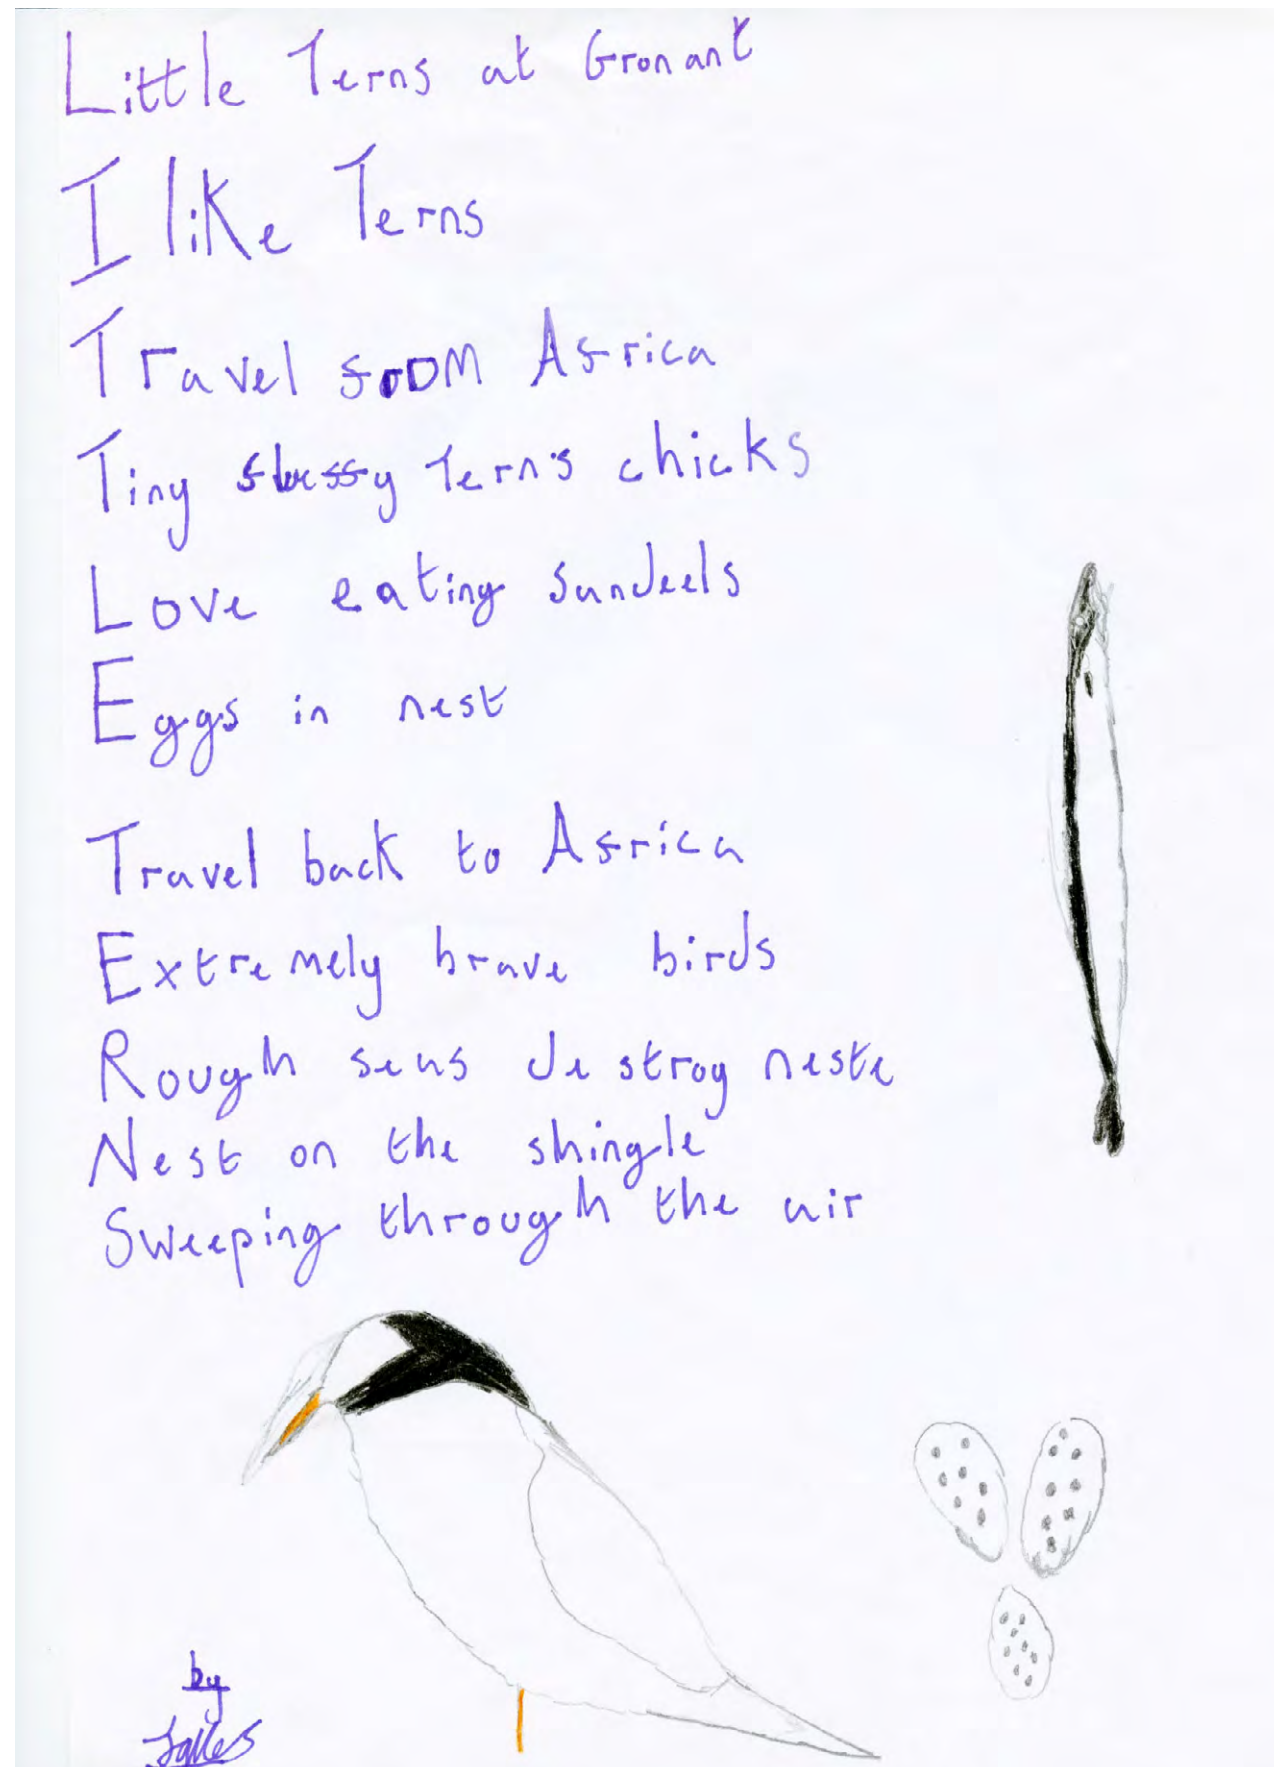 Little Terns at Gronant
I like Terns
Travel from Africa
Tiny fluffy Tern's chicks
Love eating sandeels
Eggs in nest
Travel back to Africa
Extremely brave birds
Rough seas destroy nests
Nest on the shingle
Sweeping through the air
by
James